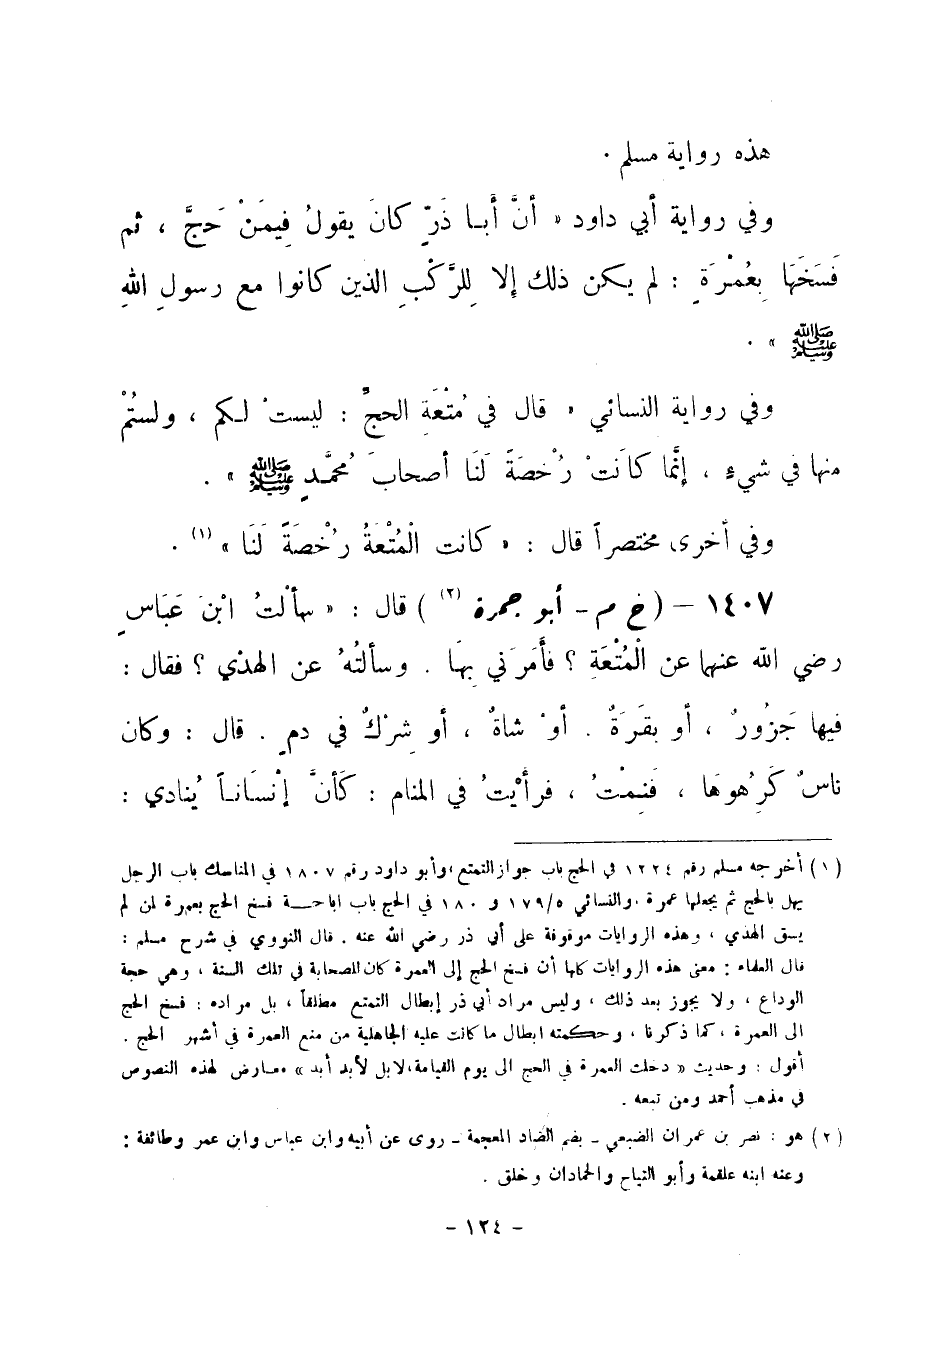 هذه رواية مسلم .
وفي رواية أبي داود « أنَّ أَبـا ذَرّ كانَ يقولُ فِيمَنْ حَجَّ ، ثم
فَسَخَهَا بِعُمْرَةٍ : لم يكن ذلك إلا لِلرَّكْبِ الذين كانوا مع رسولِ اللهِ
ﷺ » .
وفي رواية النسائي « قال في مُتْعَةِ الحجِّ : ليستْ لـكم ، ولستُمْ
منها في شيءٍ ، إنَّما كانَتْ رُخْصَةً لَنَا أصحابَ مُحمَّدٍ ﷺ » .
وفي أخرى مختصراً قال : « كانت الْمُتْعَةُ رُخْصَةً لَنَا » (١) .
١٤٠٧ – ( خ م – أبو جمرة (٢) ) قال : « سألْتُ ابْنَ عَبَّاسٍ
رضي الله عنهما عن الْمُتْعَةِ ؟ فأَمَرَني بِهَا . وسألتُهُ عن الهدْي ؟ فقال :
فيها جَزُورٌ ، أو بقَرَةٌ . أوْ شاةٌ ، أو شِرْكٌ في دمٍ . قال : وكان
ناسٌ كَرِهُوهَا ، فَنِمْتُ ، فرأَيْتُ في المنام : كَأنَّ إنْسَانـاً يُنادي :
(١) أخرجه مسلم رقم ١٢٢٤ في الحج باب جواز التمتع ، وأبو داود رقم ١٨٠٧ في المناسك باب الرجل
يهل بالحج ثم يجعلها عمرة ، والنسائي ١٧٩/٥ و ١٨٠ في الحج باب اباحـــة فسخ الحج بعمرة لمن لم
يسق الهدي ، وهذه الروايات موقوفة على أبي ذر رضي الله عنه . قال النووي في شرح مسلم :
قال العلماء : معنى هذه الروايات كلها أن فسخ الحج إلى العمرة كان للصحابة في تلك السنة ، وهي حجة
الوداع ، ولا يجوز بعد ذلك ، وليس مراد أبي ذر إبطال التمتع مطلقاً ، بل مراده : فسخ الحج
الى العمرة ، كما ذكرنا ، وحكمته ابطال ما كانت عليه الجاهلية من منع العمرة في أشهر الحج .
أقول : وحديث « دخلت العمرة في الحج الى يوم القيامة ، لا بل لأبد أبد » معـارض لهذه النصوص
في مذهب أحمد ومن تبعه .
(٢) هو : نصر بن عمران الضبعي – بضم الضاد المعجمة – روى عن أبيه وابن عباس وابن عمر وطائفة :
وعنه ابنه علقمة وأبو التياح والحمادان وخلق .
– ١٢٤ –